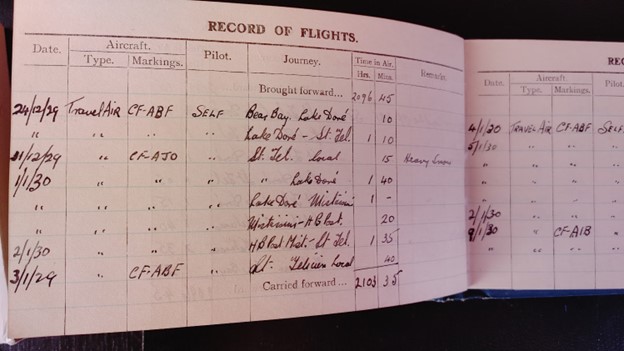 RECORD OF FLIGHTS.
Date. Aircraft. Pilot. Journey. Time in Air. Remarks
Type. Markings. Hrs. Min.
Brought forward... 2096 45
24/12/29 Travel Air CF-ABF SELF Bear Bay. Lake Doré 10
" " " " Lake Doré - St. Fel. 1 10
31/12/29 " CF-AJO " St. Fel. Local 15 Heavy Snow
1/1/30 " " " " Lake Doré 1 40
" " " " Lake Doré 1 -
" " " " 20
2/1/30 " " " H B Post Mist. - St Fel. 1 35
3/1/29 " CF-ABF " St. Felicien Local 40
Carried forward... 2103 35
REC
Date. Aircraft. Pilot
Type. Markings.
4/1/30 TRAVEL AIR CF-ABF SELF
5/1/30 " " "
" " " "
" " " "
" " "
9/1/30 " CF-AIB "
" " " "